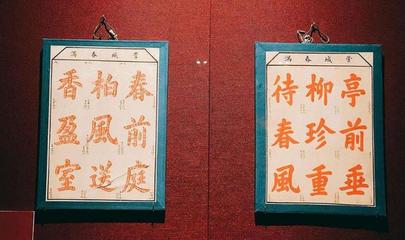 管城春滿
亭前垂
柳珍重
待春風
管城春滿
春前庭
柏風送
香盈室